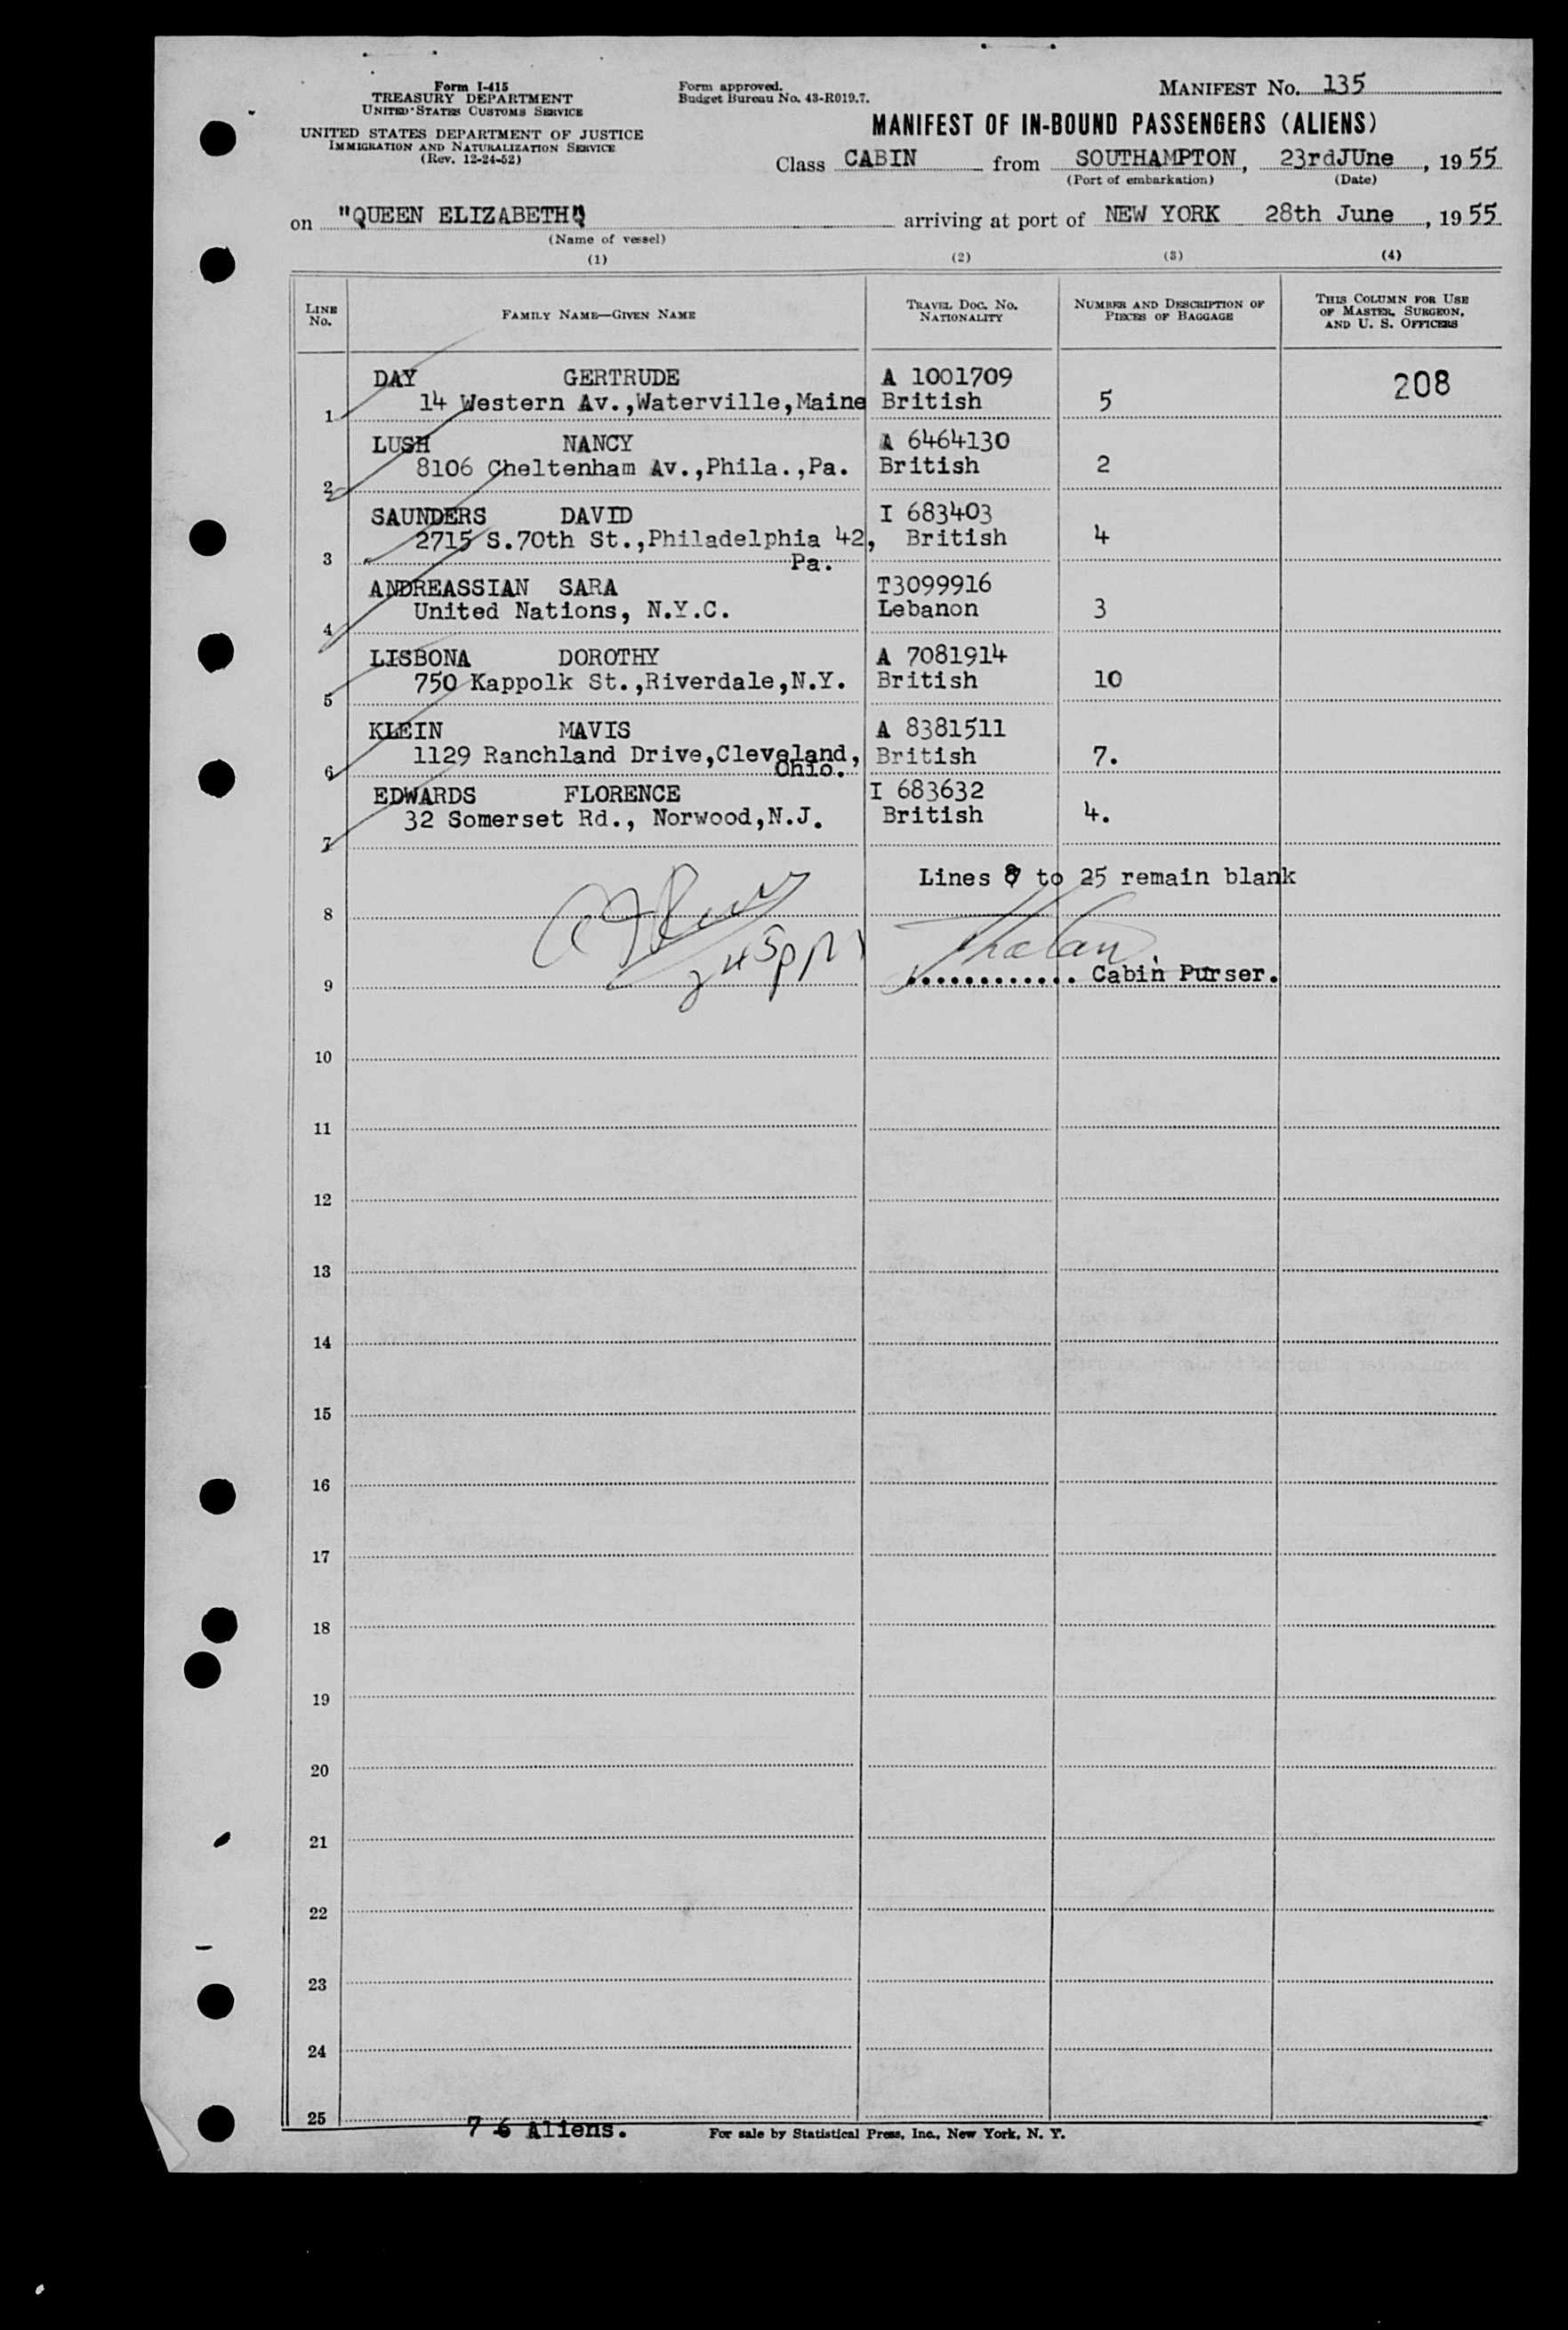 Form I-415
TREASURY DEPARTMENT
UNITED STATES CUSTOMS SERVICE
UNITED STATES DEPARTMENT OF JUSTICE
IMMIGRATION AND NATURALIZATION SERVICE
(Rev. 12-24-52)
Form approved.
Budget Bureau No. 43-R019.7.
MANIFEST No. 135
MANIFEST OF IN-BOUND PASSENGERS (ALIENS)
Class CABIN from SOUTHAMPTON, 23rdJUne, 1955
(Port of embarkation) (Date)
on "QUEEN ELIZABETH" arriving at port of NEW YORK 28th June, 1955
(Name of vessel)
(1) (2) (3) (4)
LINE No. FAMILY NAME—GIVEN NAME TRAVEL DOC. NO. NATIONALITY NUMBER AND DESCRIPTION OF PIECES OF BAGGAGE THIS COLUMN FOR USE OF MASTER, SURGEON, AND U. S. OFFICERS
DAY GERTRUDE A 1001709 208
1 14 Western Av.,Waterville,Maine British 5
LUSH NANCY A 6464130
2 8106 Cheltenham Av.,Phila.,Pa. British 2
SAUNDERS DAVID I 683403
2715 S.70th St.,Philadelphia 42, British 4
3 Pa.
ANDREASSIAN SARA T3099916
4 United Nations, N.Y.C. Lebanon 3
LISBONA DOROTHY A 7081914
5 750 Kappolk St.,Riverdale,N.Y. British 10
KLEIN MAVIS A 8381511
1129 Ranchland Drive,Cleveland, British 7.
6 Ohio.
EDWARDS FLORENCE I 683632
7 32 Somerset Rd., Norwood,N.J. British 4.
Lines 8 to 25 remain blank
8
9 ............ Cabin Purser.
10
11
12
13
14
15
16
17
18
19
20
21
22
23
24
25
7 6 Aliens.
For sale by Statistical Press, Inc., New York, N. Y.